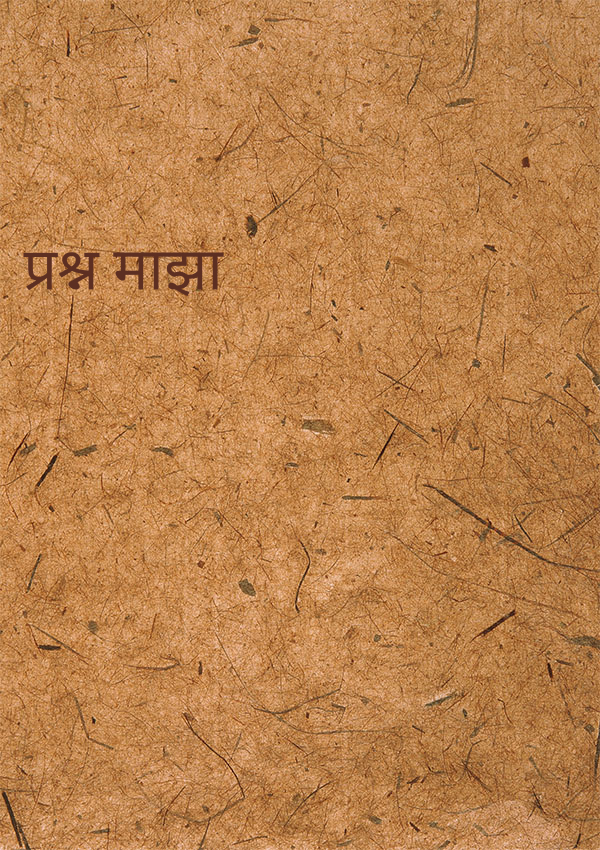 प्रश्न माझा